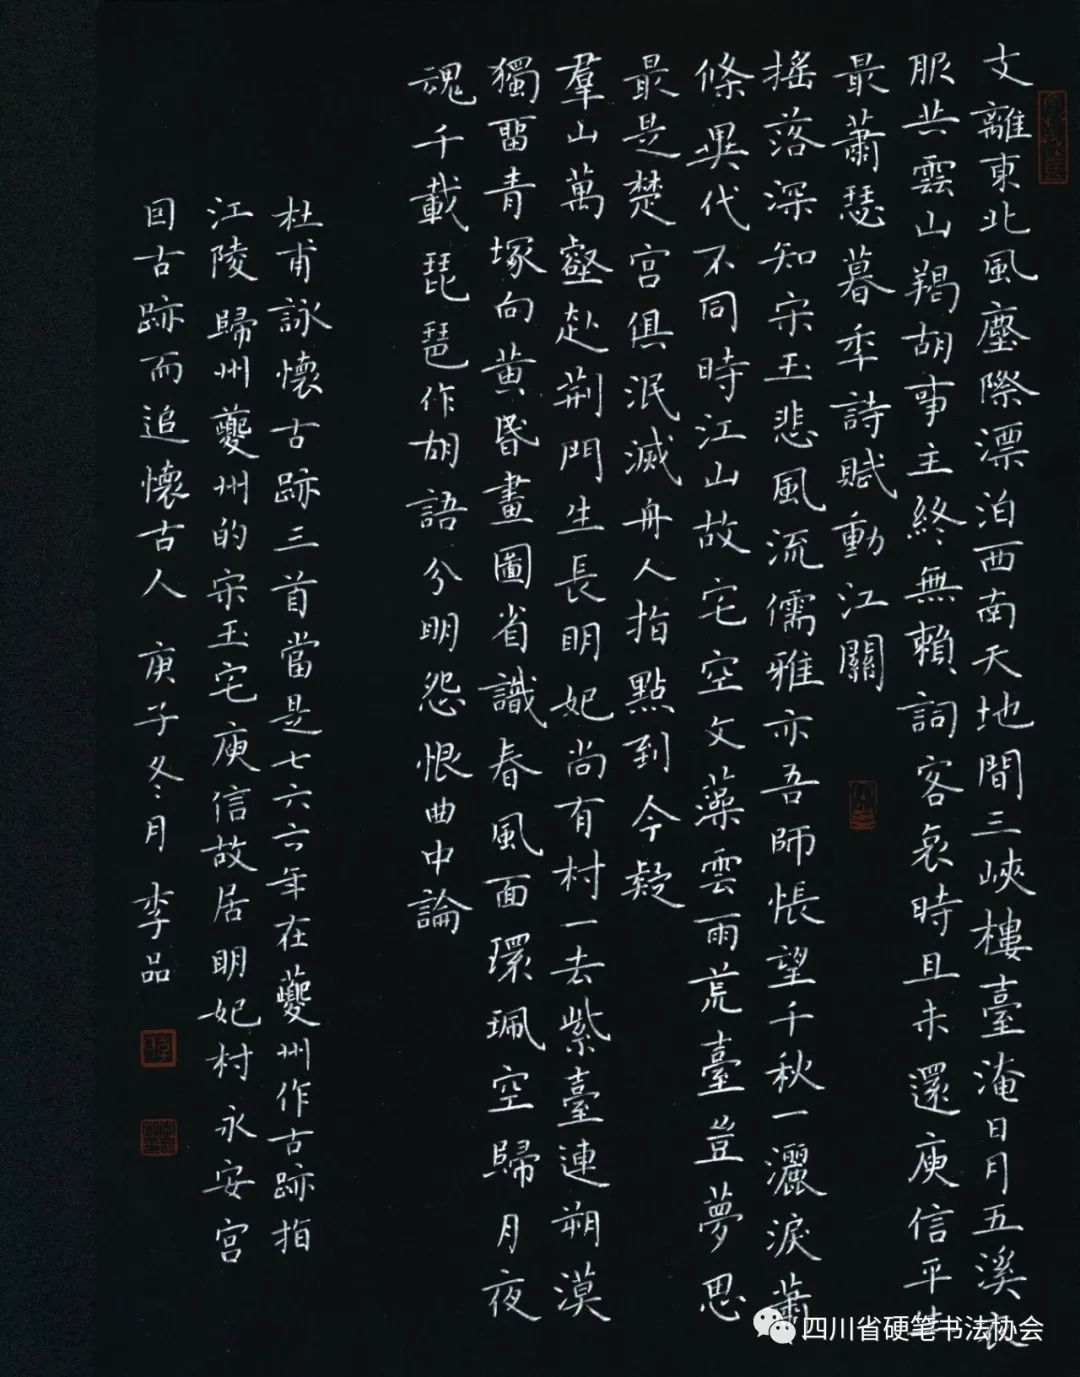 支離東北風塵際漂泊西南天地間三峽樓臺淹日月五溪衣
服共雲山羯胡事主終無賴詞客哀時且未還庾信平生
最蕭瑟暮年詩賦動江關
搖落深知宋玉悲風流儒雅亦吾師悵望千秋一灑淚蕭
條異代不同時江山故宅空文藻雲雨荒臺豈夢思
最是楚宮俱泯滅舟人指點到今疑
羣山萬壑赴荆門生長明妃尚有村一去紫臺連朔漠
獨留青塚向黃昏畫圖省識春風面環珮空歸月夜
魂千載琵琶作胡語分明怨恨曲中論
杜甫詠懷古跡三首當是七六六年在夔州作古跡指
江陵歸州夔州的宋玉宅庾信故居明妃村永安宮
因古跡而追懷古人 庚子冬月 李品
四川省硬笔书法协会